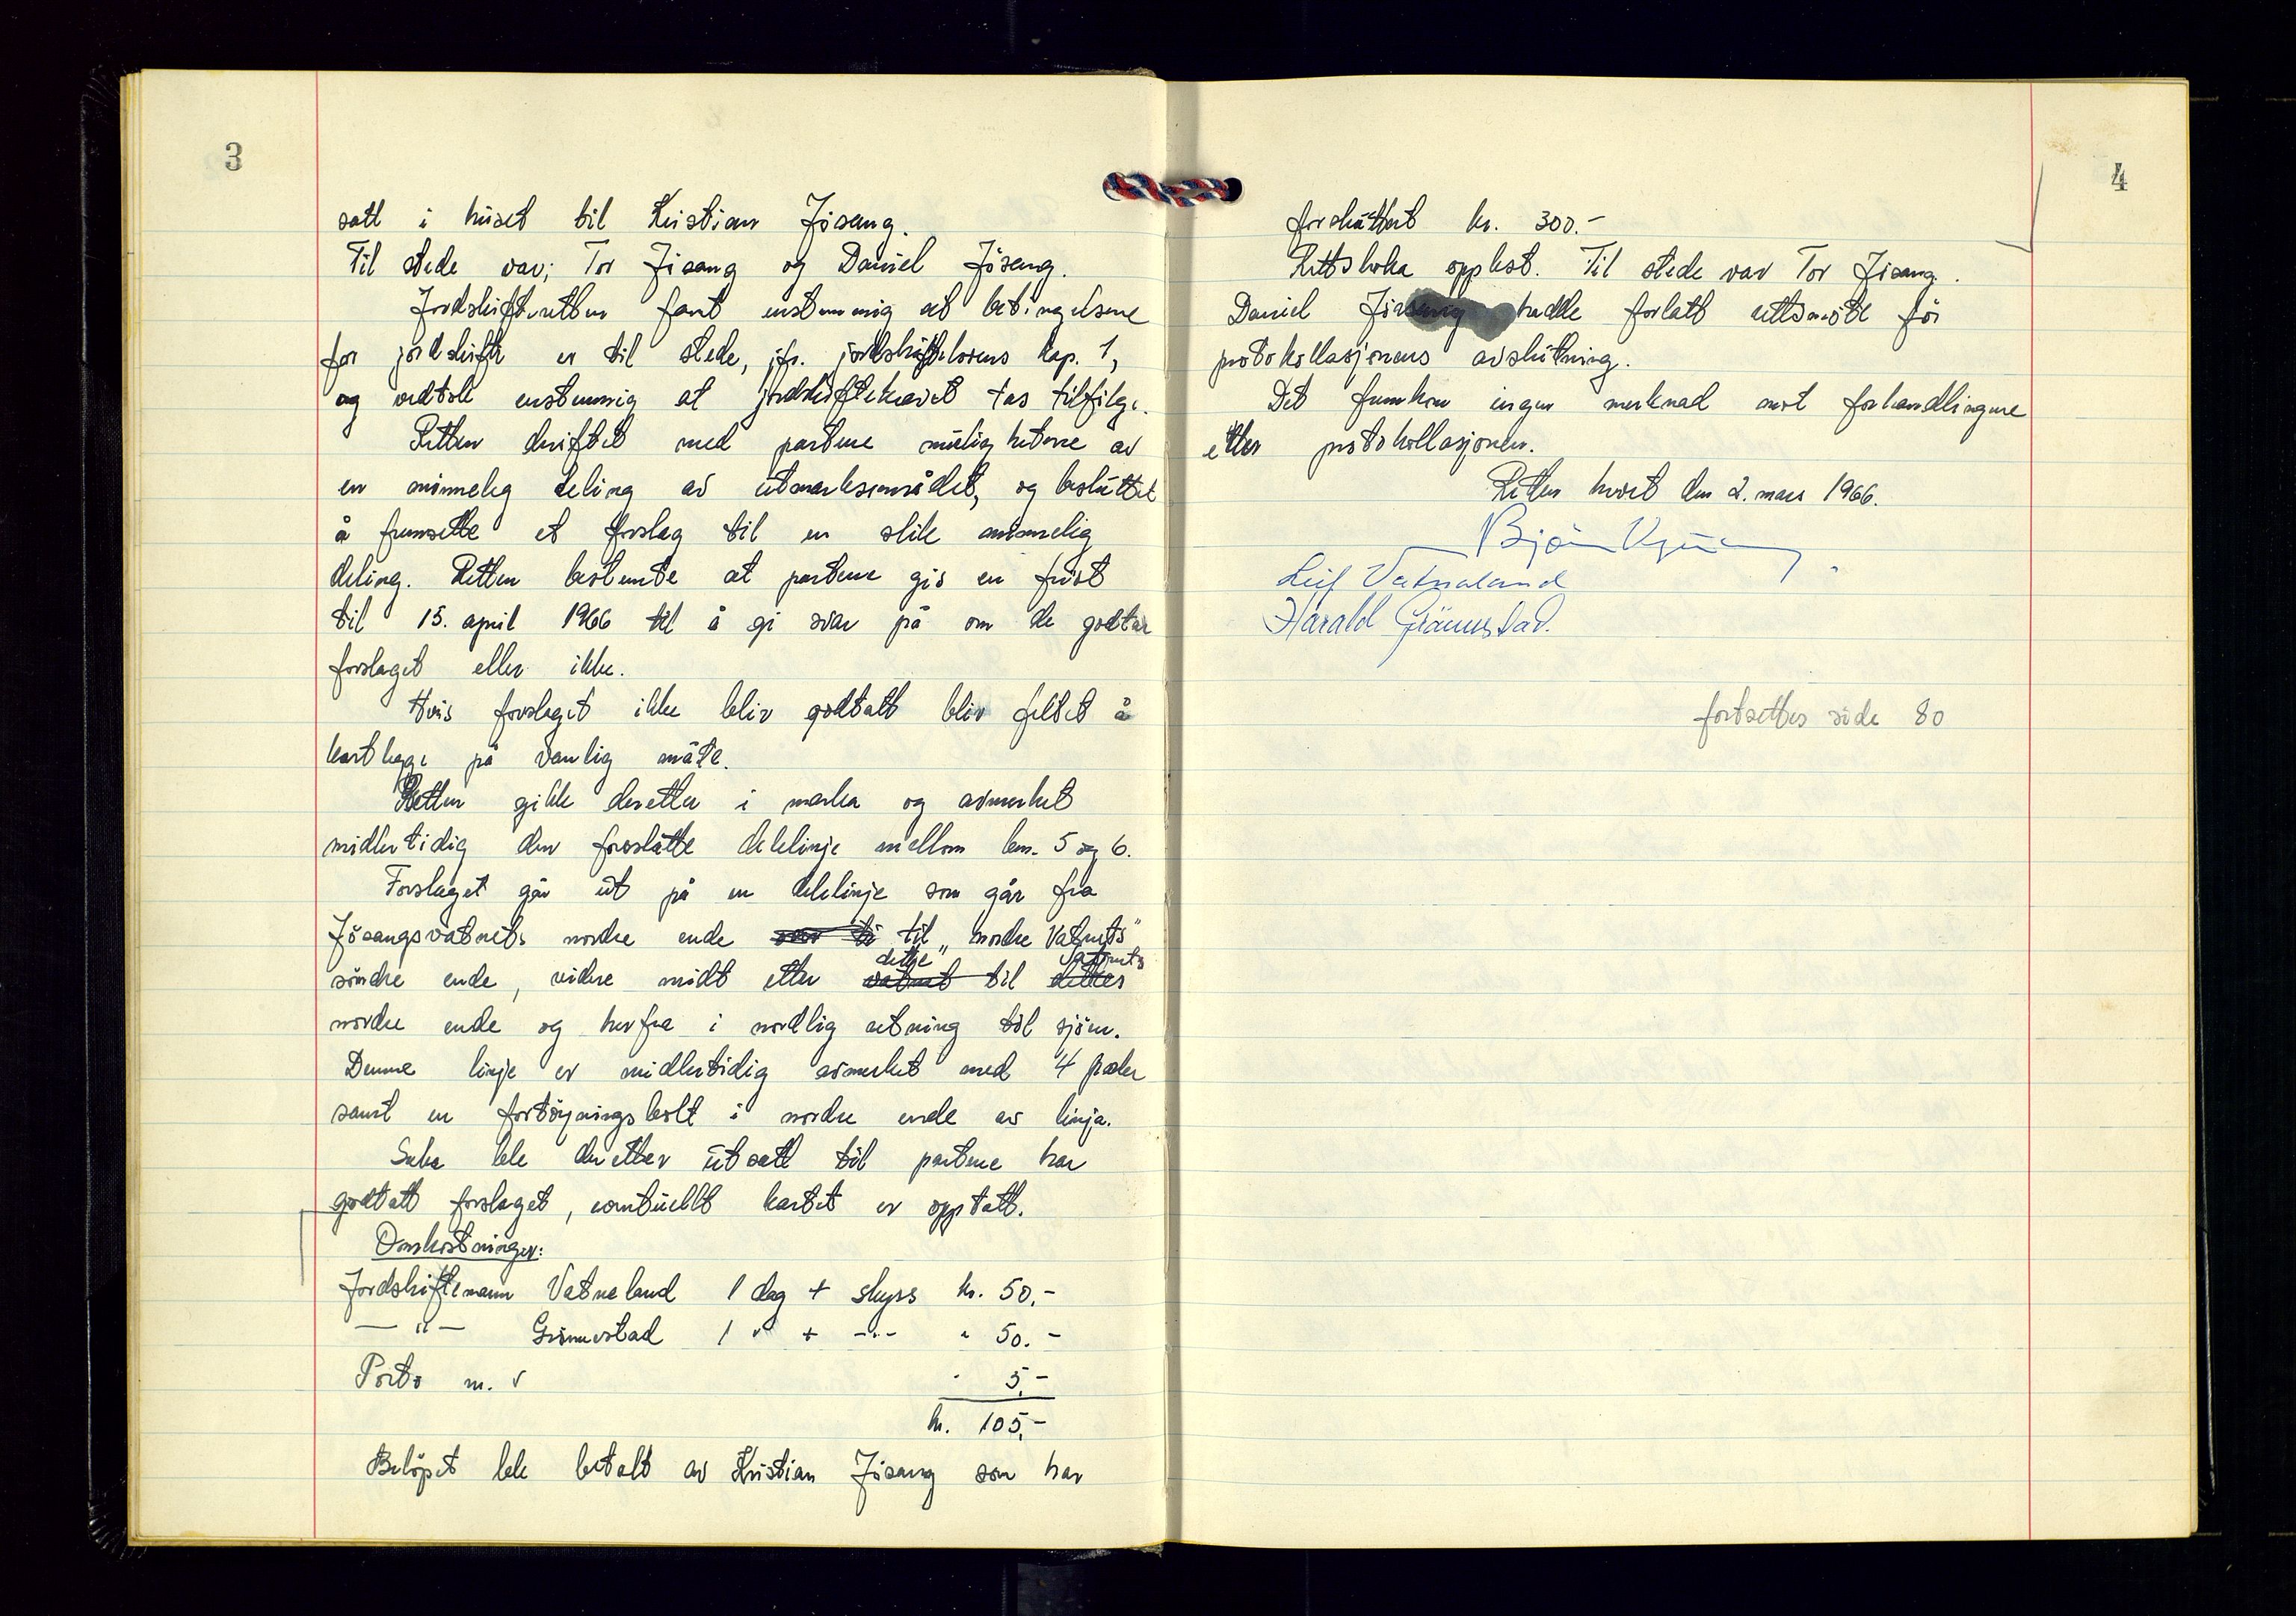 3
satt i huset til Kristian Jösang.
Til stede var; Tor Jösang og Daniel Jösang.
Jordskifteretten fant enstemmig at betingelsene
for jordskifte er til stede, jfr. jordskiftelovens kap. 1,
og vedtok enstemmig at jordskiftekravet tas tilfölge.
Retten dröftet med partene mulighetene av
en minnelig deling av utmarksområdet, og besluttet
å fremsette et forslag til en slik minnelig
deling. Retten bestemte at partene gis en frist
til 15. april 1966 til å gi svar på om de godtar
forslaget eller ikke.
Hvis forslaget ikke blir godtatt blir feltet å
kartlegge på vanlig måte.
Retten gikk deretter i marka og avmerket
midlertidig den foreslåtte delelinje mellom bnr. 5 og 6.
Forslaget går ut på en delelinje som går fra
Jösangsvatnets nordre ende til „nordre Vatnets"
söndre ende, videre midt etter vatnet dette til dettes Vatnets
nordre ende og herfra i nordlig retning til sjöen.
Denne linje er midlertidig avmerket med 4 pæler
samt en fortöyningsbolt i nordre ende av linja.
Saka ble deretter utsatt til partene har
godtatt forslaget, eventuellt kartet er opptatt.
Omkostninger:
Jordskiftemann Vatnaland 1 dag + skyss kr. 50,-
— " — Grönnestad 1 " + -"- " 50.-
Porto m. v " 5,-
kr. 105,-
Belöpet ble betalt av Kristian Jösang som har
4
forskuttert kr. 300.-
Rettsboka opplest. Til stede var Tor Jösang.
Daniel Jösang hadde forlatt rettsmöte för
protokollasjonens avslutning.
Det fremkom ingen merknad mot forhandlingene
etter protokollasjonen.
Retten hevet den 2. mars 1966.
Björn
Leif Vatnaland
Harald Grönnestad.
fortsettes side 80